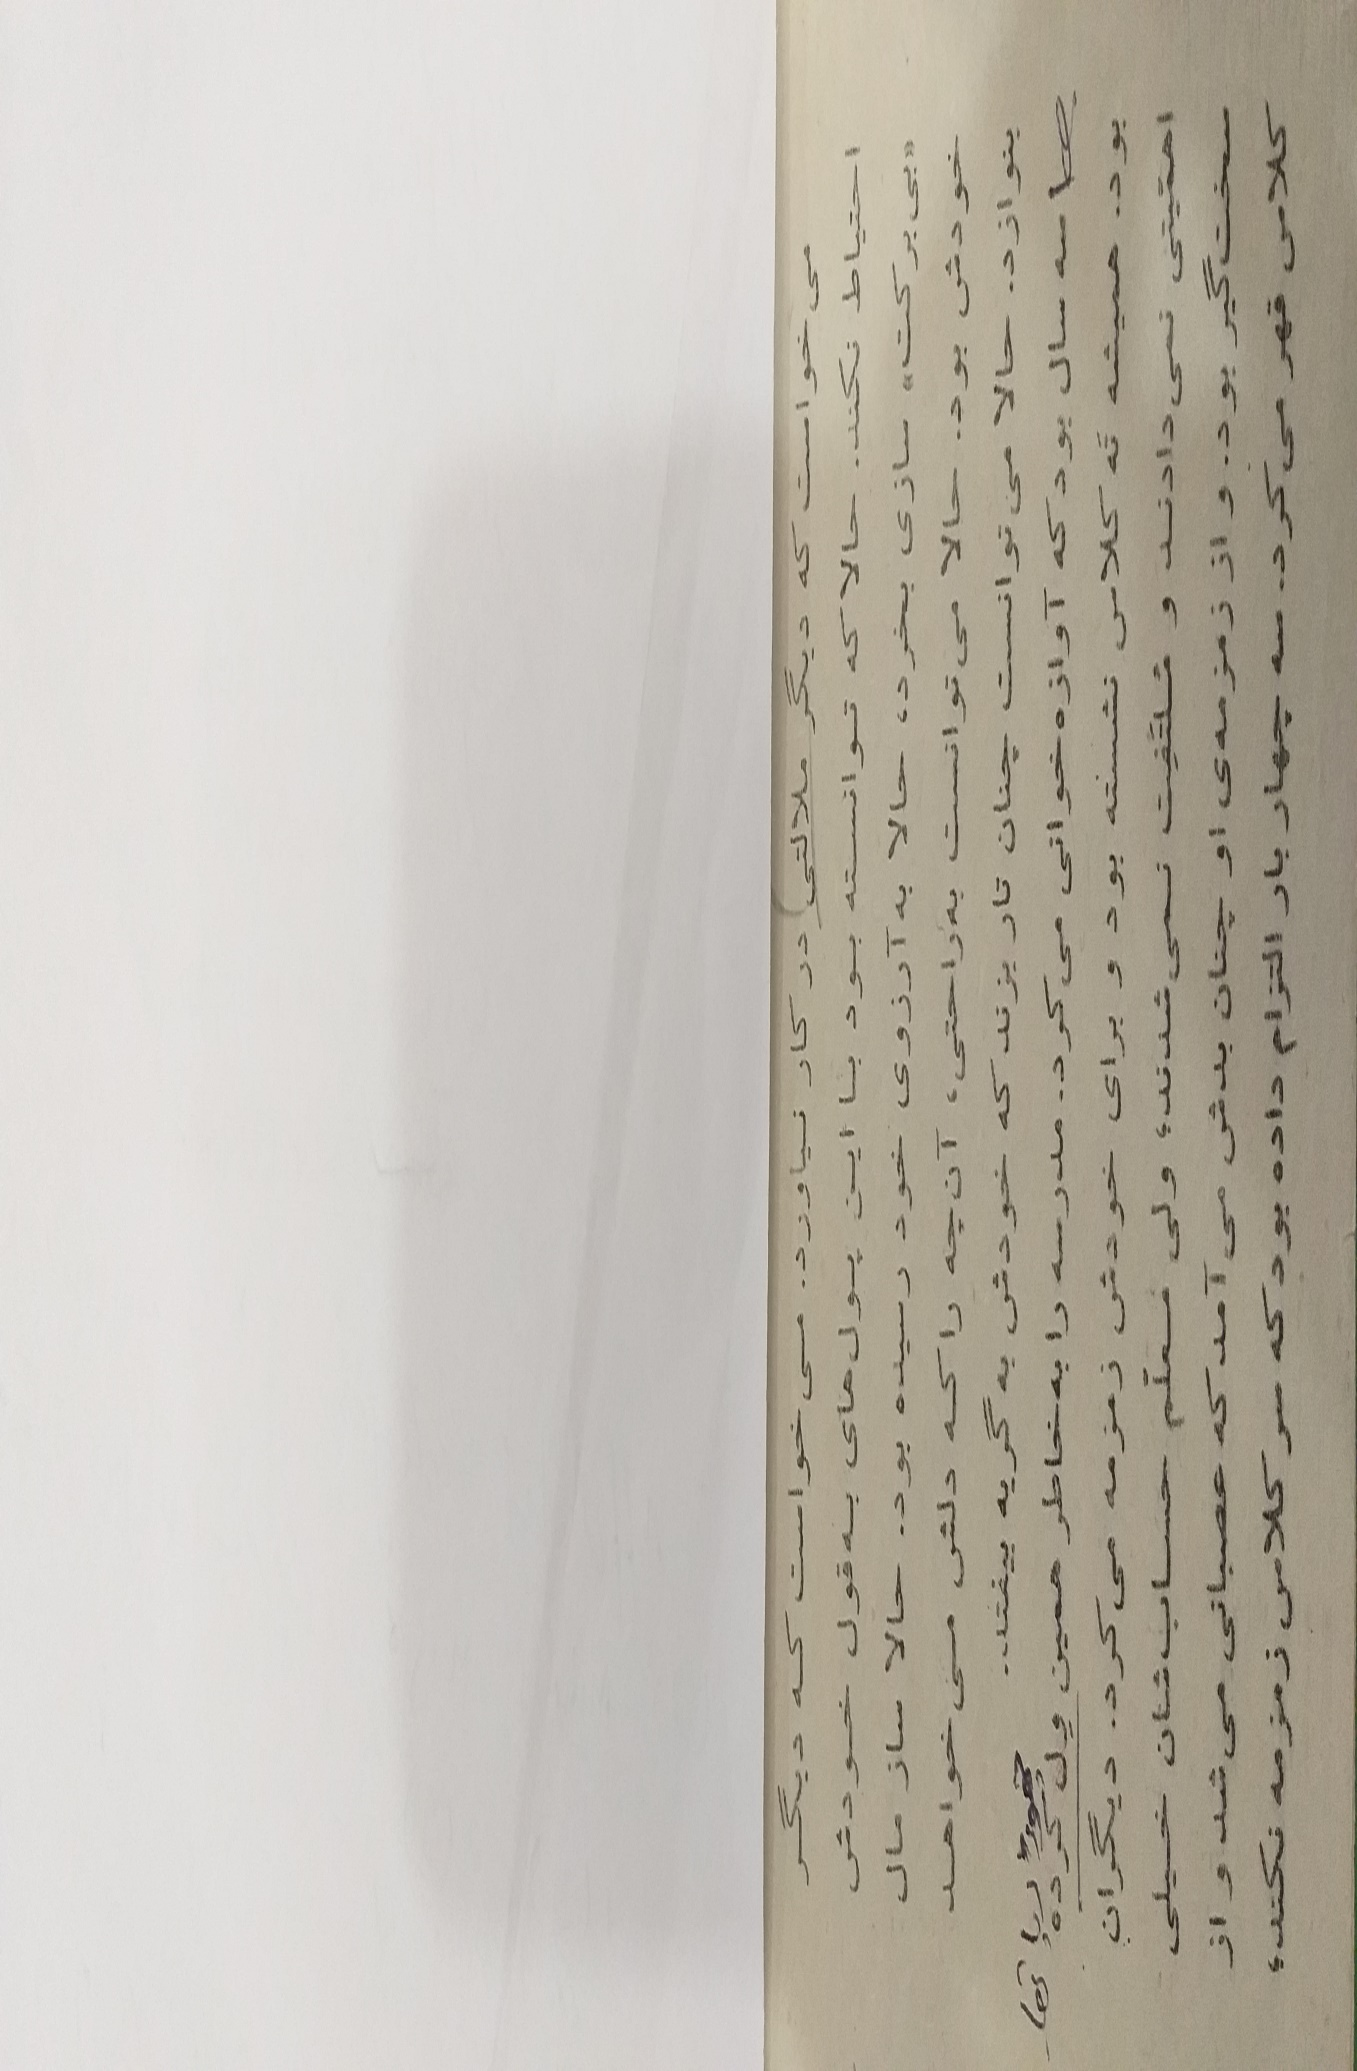 می‌خواست که دیگر ملالتی در کار نیاورد. می‌خواست که دیگر
احتیاط نکند. حالا که توانسته بود با این پول‌های به‌قول خودش
«بی‌برکت» سازی بخرد، حالا به آرزوی خود رسیده بود. حالا ساز مال
خودش بود. حالا می‌توانست به‌راحتی، آن‌چه را که دلش می‌خواهد
بنوازد. حالا می‌توانست چنان تار بزند که خودش به گریه بیفتد.
سه سال بود که آوازه‌خوانی می‌کرد. مدرسه را به‌خاطر همین ول کرده
بود. همیشه تَه کلاس نشسته بود و برای خودش زمزمه می‌کرد. دیگران
اهمّیتی نمی‌دادند و مُلتَفِت نمی‌شدند، ولی معلّم حساب‌شان خیلی
سخت‌گیر بود. و از زمزمه‌ی او چنان بدش می‌آمد که عصبانی می‌شد و از
کلاس قهر می‌کرد. سه چهار بار التزام داده بود که سر کلاس زمزمه نکند،